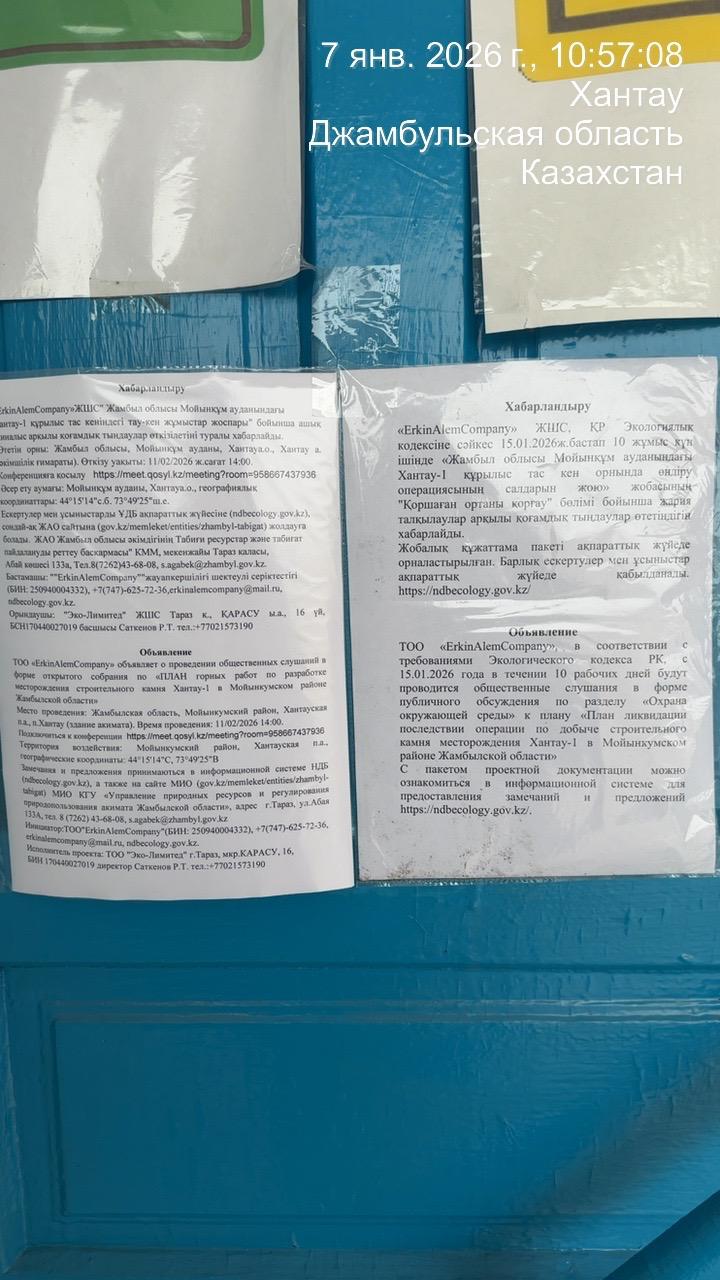 7 янв. 2026 г., 10:57:08
Хантау
Джамбульская область
Казахстан
Хабарландыру
ErkinAlemCompany»ЖШС" Жамбыл облысы Мойынқұм ауданындағы
антау-1 құрылыс тас кеніндегі тау-кен жұмыстар жоспары" бойынша ашық
иналыс арқылы қоғамдық тыңдаулар өткізілетіні туралы хабарлайды.
Өтетін орны: Жамбыл облысы, Мойынқұм ауданы, Хантауа.о., Хантау а.
әкімшілік ғимараты). Өткізу уақыты: 11/02/2026 ж.сағат 14:00.
Конференцияга косылу https://meet.qosyl.kz/meeting?room=958667437936
Әсер ету аумағы: Мойынқұм ауданы, Хантауа.о., географиялық
координаттары: 44°15'14"с.б. 73°49'25"ш.е.
Ескертулер мен ұсыныстарды ҰДБ ақпараттық жүйесіне (ndbecology.gov.kz),
сондай-ақ ЖАО сайтына (gov.kz/memleket/entities/zhambyl-tabigat) жолдауға
болады. ЖАО Жамбыл облысы әкімдігінің Табиғи ресурстар және табиғат
пайдалануды реттеу басқармасы" КММ, мекенжайы Тараз қаласы,
Абай көшесі 133а, Тел.8(7262)43-68-08, s.agabek@zhambyl.gov.kz.
Бастамашы: ""ErkinAlemCompany""жауапкершілігі шектеулі серіктестігі
(БИН: 250940004332), +7(747)-625-72-36,erkinalemcompany@mail.ru,
ndbecology.gov.kz.
Орындаушы: "Эко-Лимитед" ЖШС Тараз к., ҚАРАСУ ы.а., 16 үй,
БСН170440027019 басшысы Саткенов Р.Т. тел.:+77021573190
Объявление
ТОО «ErkinAlemCompany» объявляет о проведении общественных слушаний в
форме открытого собрания по «ПЛАН горных работ по разработке
месторождения строительного камня Хантау-1 в Мойынкумском районе
Жамбылской области»
Место проведения: Жамбылская область, Мойынкумский район, Хантауская
п.а., п.Хантау (здание акимата). Время проведения: 11/02/2026 14:00.
Подключиться к конференции https://meet.qosyl.kz/meeting?room=958667437936
Территория воздействия: Мойынкумский район, Хантауская п.а.,
географические координаты: 44°15'14"С, 73°49'25"В
Замечания и предложения принимаются в информационной системе НДБ
(ndbecology.gov.kz), а также на сайте МИО (gov.kz/memleket/entities/zhambyl-
tabigat) МИО КГУ «Управление природных ресурсов и регулирования
природопользования акимата Жамбылской области», адрес г.Тараз, ул.Абая
133А, тел. 8 (7262) 43-68-08, s.agabek@zhambyl.gov.kz
Инициатор:ТОО"ErkinAlemCompany"(БИН: 250940004332), +7(747)-625-72-36,
erkinalemcompany@mail.ru, ndbecology.gov.kz.
Исполнитель проекта: ТОО "Эко-Лимитед" г.Тараз, мкр.КАРАСУ, 16,
БИН 170440027019 директор Саткенов Р.Т. тел.:+77021573190
Хабарландыру
«ErkinAlemCompany» ЖШС, ҚР Экологиялық
кодексіне сәйкес 15.01.2026ж.бастап 10 жұмыс күн
ішінде «Жамбыл облысы Мойынқұм ауданындағы
Хантау-1 құрылыс тас кен орнында өндіру
операциясының салдарын жою» жобасының
"Қоршаған ортаны қорғау" бөлімі бойынша жария
талқылаулар арқылы қоғамдық тыңдаулар өтетіндігін
хабарлайды.
Жобалық құжаттама пакеті ақпараттық жүйеде
орналастырылған. Барлық ескертулер мен ұсыныстар
ақпараттық жүйеде қабылданады.
https://ndbecology.gov.kz/
Объявление
ТОО «ErkinAlemCompany», в соответствии с
требованиями Экологического кодекса РК, с
15.01.2026 года в течении 10 рабочих дней будут
проводится общественные слушания в форме
публичного обсуждения по разделу «Охрана
окружающей среды» к плану «План ликвидации
последствии операции по добыче строительного
камня месторождения Хантау-1 в Мойынкумском
районе Жамбылской области»
С пакетом проектной документации можно
ознакомиться в информационной системе для
предоставления замечаний и предложений
https://ndbecology.gov.kz/.